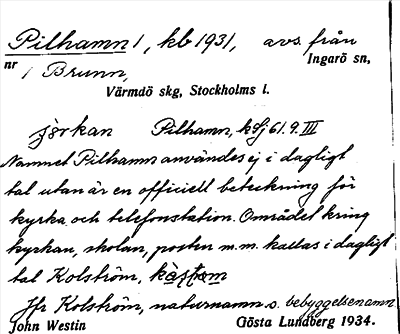 Pilhamn, kb 1931, avs. från
nr 1 Brunn, Ingarö sn,
Värmdö skg, Stockholms l.
kyrkan Pilhamn, 61. 9. III
Namnet Pilhamn användes ej i dagligt
tal utan är en officiell beteckning för
kyrka och telefonstation. Området kring
kyrkan, skolan, posten m.m. kallas i dagligt
tal Kolström,
Jfr Kolström, naturnamn o. bebyggelsenamn
John Westin Gösta Lundberg 1934.